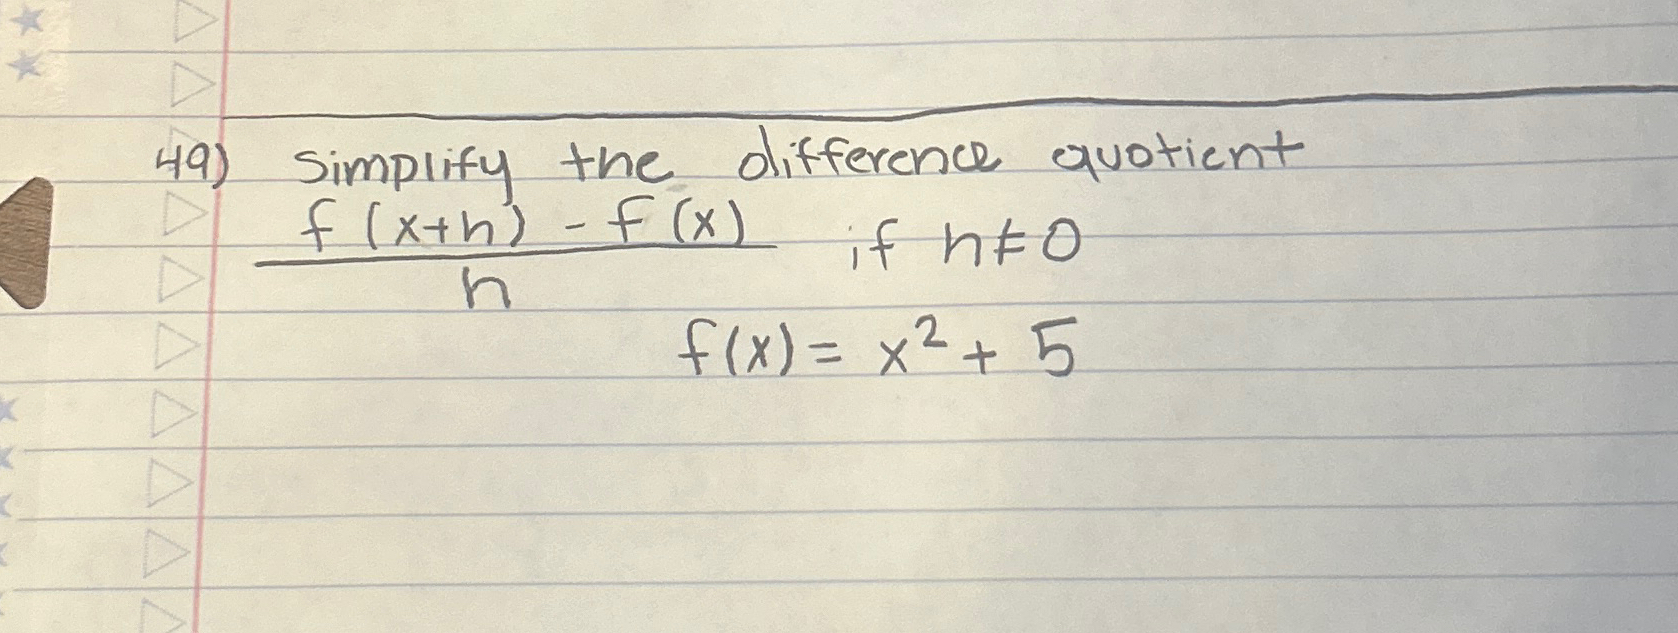 49) simplify the difference quotient
f(x+h) - f(x)
h
if h≠0
f(x) = x² + 5